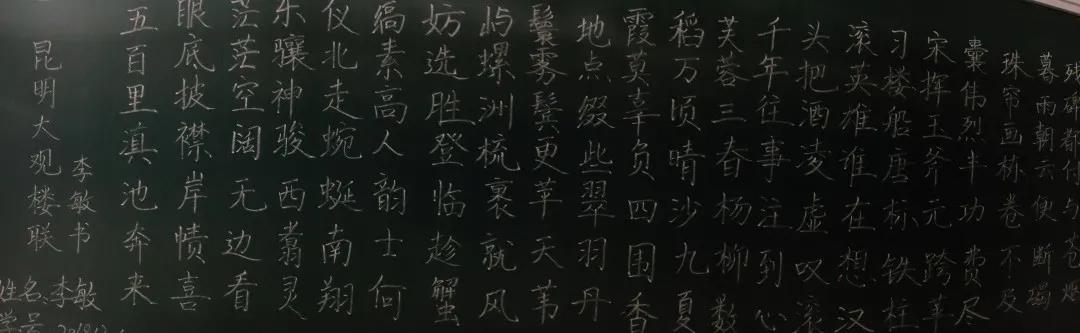 昆明大观楼联
李敏书
姓名:李敏
学号
五百里滇池奔来
眼底披襟岸帻喜
茫茫空阔无边看
东骧神骏西翥灵
仪北走蜿蜒南翔
缟素高人韵士何
妨选胜登临趁蟹
屿螺洲梳裹就风
鬟雾鬓更革天苇
地点缀些翠羽丹
霞莫辜负四围香
稻万顷晴沙九夏
芙蓉三春杨柳数
千年往事注到心
头把酒凌虚叹滚
滚英雄谁在想汉
习楼船唐标铁柱
宋挥玉斧元跨革
囊伟烈丰功费尽
珠帘画栋卷不及
暮雨朝云便断碣
残碑都付与苍烟